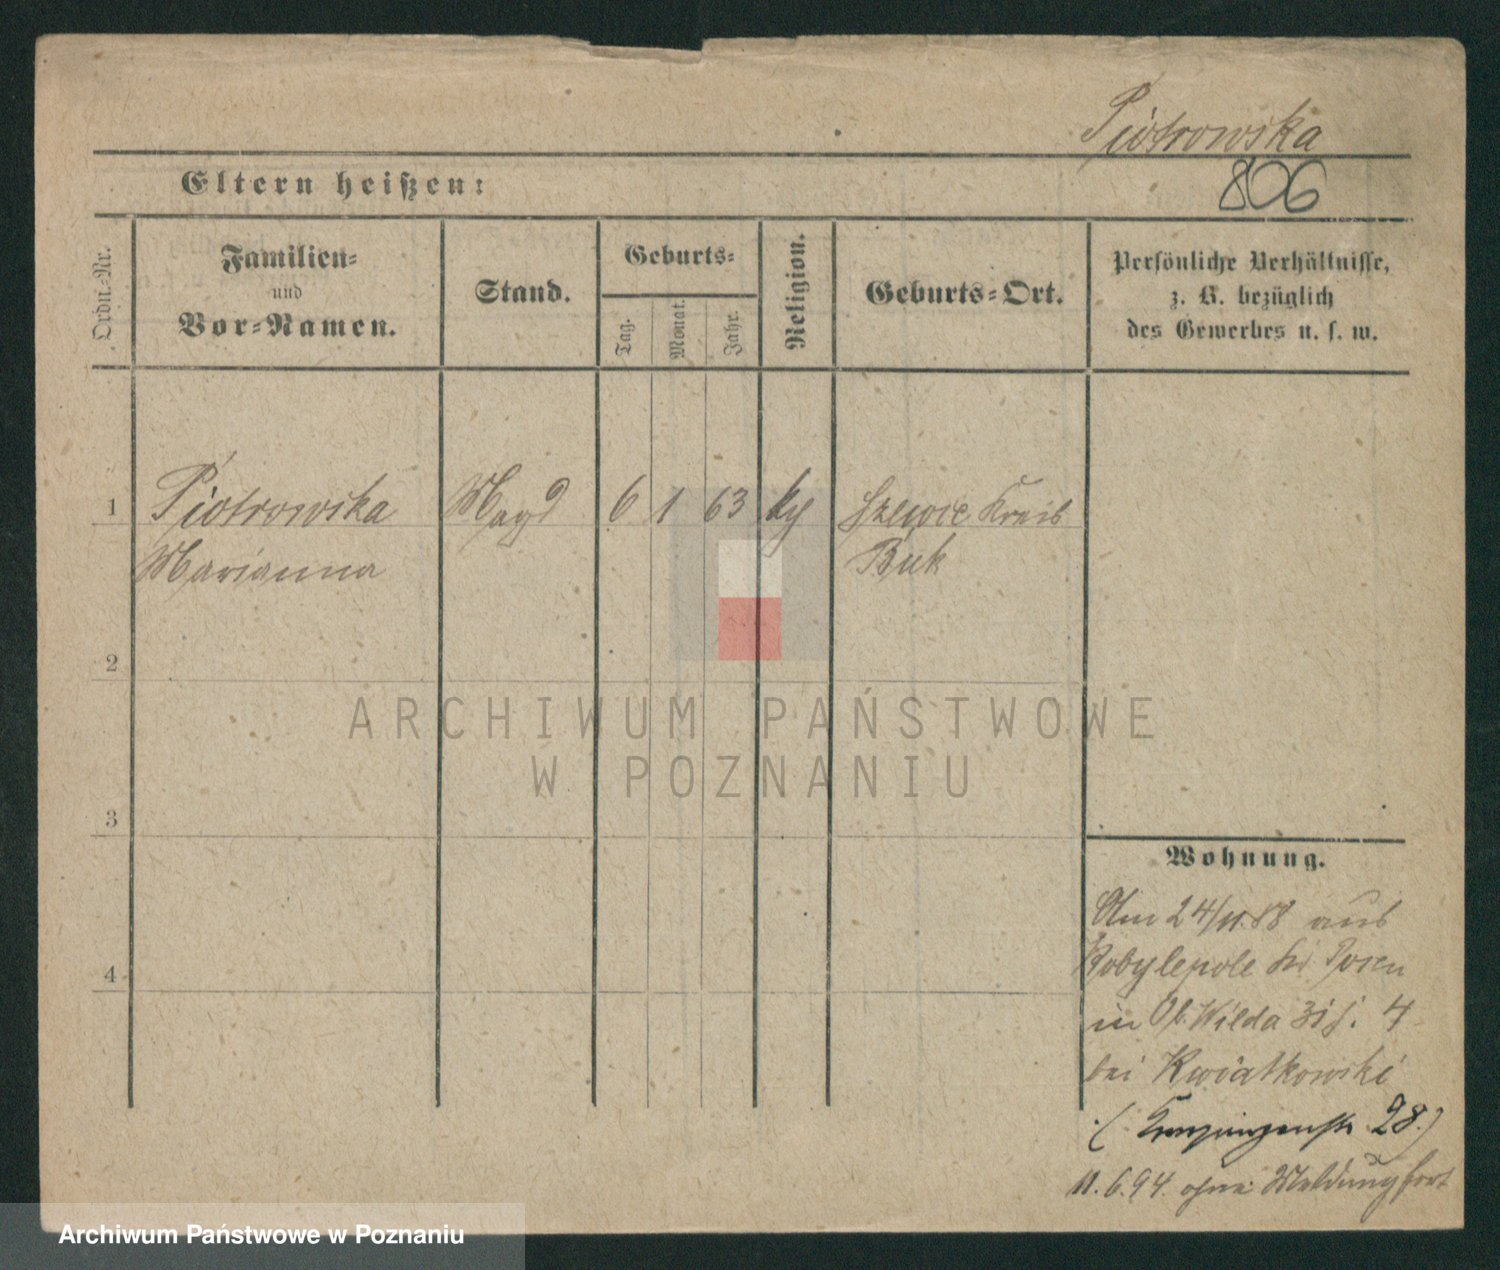 Piotrowska
Eltern heißen:
806
Ordn.-Nr.
Familien-
und
Vor-Namen.
Stand.
Geburts-
Tag.
Monat.
Jahr.
Religion.
Geburts-Ort.
Persönliche Verhältnisse,
z. B. bezüglich
des Gewerbes u. s. w.
1 Piotrowska Magd 6 1 63 kg Szewce Kreis
Marianna Buk
2
3
4
ARCHIWUM PAŃSTWOWE
W POZNANIU
Wohnung.
Am 24/11.88 aus
Kobylepole bei Posen
in Ob. Wilda 4
bei Kwiatkowski
28.)
11.6.94. ohne Meldung fort
Archiwum Państwowe w Poznaniu